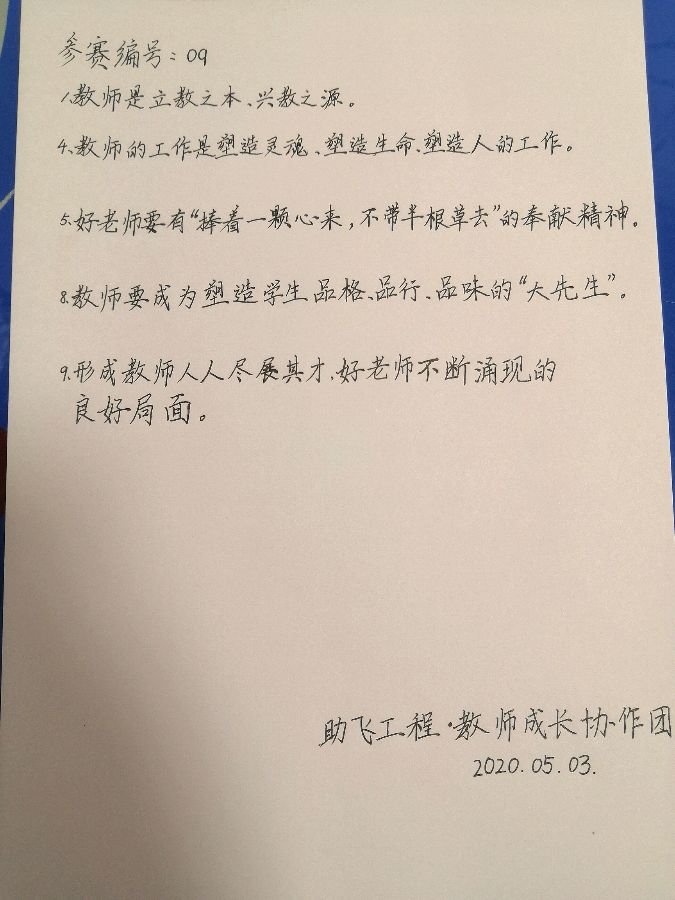 参赛编号：09
1.教师是立教之本、兴教之源。
4.教师的工作是塑造灵魂、塑造生命、塑造人的工作。
5.好老师要有“捧着一颗心来，不带半根草去”的奉献精神。
8.教师要成为塑造学生品格、品行、品味的“大先生”。
9.形成教师人人尽展其才，好老师不断涌现的
良好局面。
助飞工程·教师成长协作团
2020.05.03.